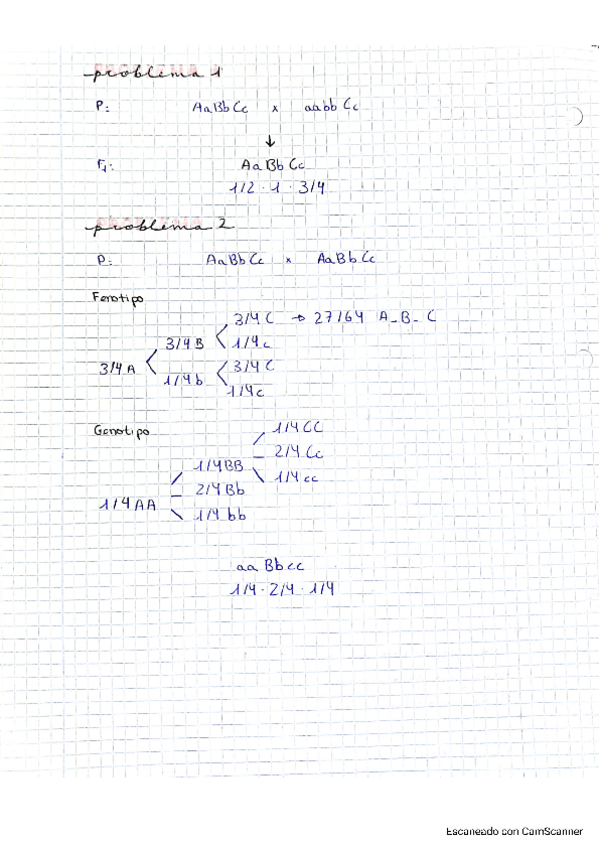 problema 1
P: AaBbCc x aabbCc
↓
F1: AaBbCc
1/2 · 1 · 3/4
problema 2
P: AaBbCc x AaBbCc
Fenotipo
3/4 C → 27/64 A_B_C
3/4 B 1/4 c
3/4 A
1/4 b 3/4 C
1/4 c
Genotipo
1/4 CC
2/4 Cc
1/4 BB 1/4 cc
2/4 Bb
1/4 AA
1/4 bb
aa Bb cc
1/4 · 2/4 · 1/4
Escaneado con CamScanner